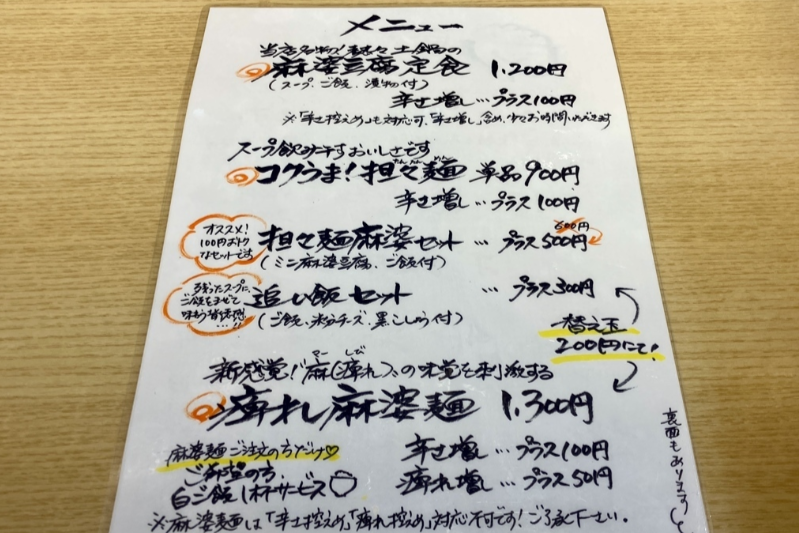 メニュー
当店名物!麻辣土鍋の
麻婆豆腐定食 1,200円
(スープ、ご飯、漬物付)
辛さ増し…プラス100円
※「辛さ控えめ」も対応可。「辛さ増し」含め、少々お時間いただきます
スープ飲み干すおいしさです
コクうま!担々麺 単品900円
たんたんめん
辛さ増し…プラス100円
オススメ!
100円おトク
なセットです
担々麺麻婆セット … プラス500円
600円
(ミニ麻婆豆腐、ご飯付)
残ったスープに、
ご飯をまぜて
味わう
追い飯セット … プラス300円
(ご飯、粉チーズ、黒こしょう付)
替え玉
200円にて!
新感覚!「麻(痺れ)」の味覚を刺激する
マー しび
痺れ麻婆麺 1,300円
麻婆麺ご注文の方だけ♡
ご希望の方
白ご飯1杯サービス
辛さ増し…プラス100円
痺れ増し…プラス50円
※麻婆麺は「辛さ控えめ」「痺れ控えめ」対応不可です!ご了承下さい。
裏面もあります